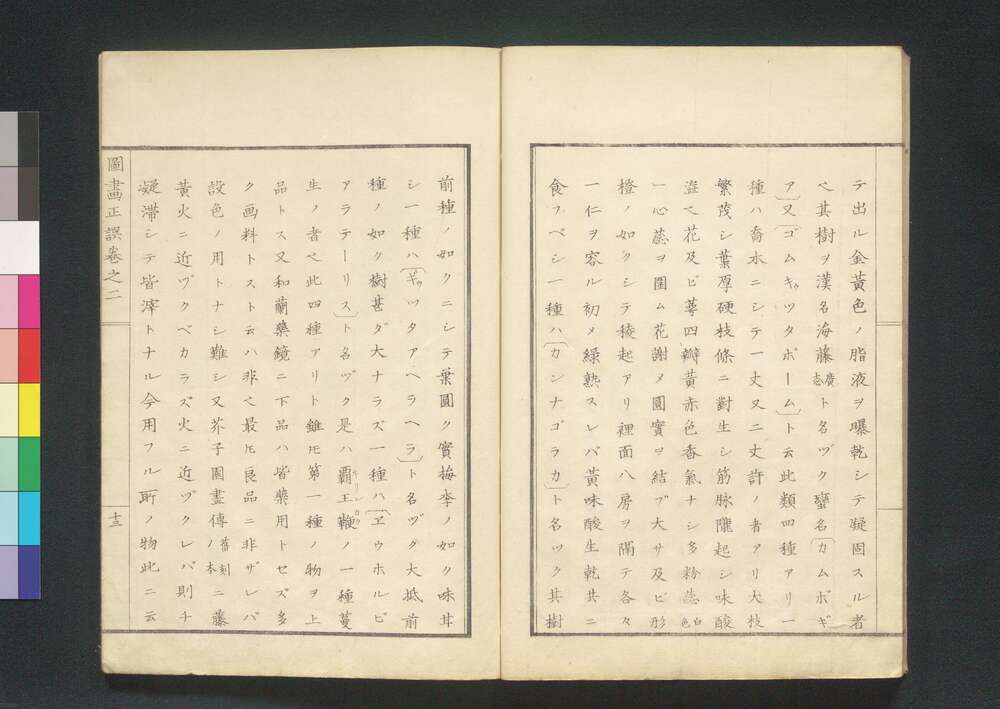 テ出ル金黃色ノ脂液ヲ曝乾シテ凝固スル者
ベ其樹ヲ漢名海藤廣志ト名ヅク蠻名〔カムボギ
ア〕又〔ゴムキッタボーム〕ト云此類四種アリ一
種ハ喬木ニシテ一丈又二丈許ノ者アリ大枝
繁茂シ葉厚硬枝條ニ對生シ筋脉隴起シ味酸
盗ベ花及ビ蕚四瓣黃赤色香氣ナシ多粉蕊白色
一心蕊ヲ圍ム花謝メ圓實ヲ結ブ大サ及ビ形
橙ノ如クシテ稜起アリ裡面八房ヲ隔テ各々
一仁ヲ容ル初メ綠熟スレバ黃味酸生乾共ニ
食フベシ一種ハ〔カンナゴラカ〕ト名ツク其樹
前種ノ如クニシテ葉圓ク實梅李ノ如ク味甘
シ一種ハ〔ギッツタアヘラヘラ〕ト名ヅク大抵前
種ノ如ク樹甚ダ大ナラズ一種ハ〔ヱウホルビ
アラテーリス〕ト名ヅク是ハ覇王鞭ノ一種蔓
生ノ者ベ此四種アリト雖𪜈第一種ノ物ヲ上
品トス又和蘭藥鏡ニ下品ハ皆藥用トセズ多
ク画料トスト云ハ非ベ最𪜈良品ニ非ザレバ
設色ノ用トナシ難シ又芥子園畫傳舊刻ノ本ニ藤
黃火ニ近ヅクベカラズ火ニ近ヅクレバ則チ
凝滯シテ皆滓トナル今用フル所ノ物此ニ云
圖畫正誤卷之二
十三